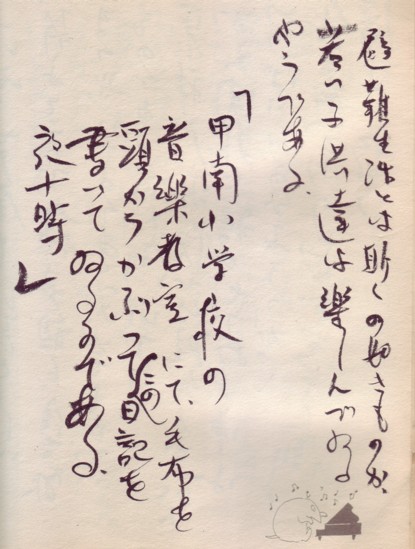 避難生活とは斯くの如きものか、
若い子供達は樂しんでゐる
やうである。
「甲南小学校の
音樂教室にて、毛布を
頭からかぶつてこの日記を
書いてゐるのである、
夜十時」